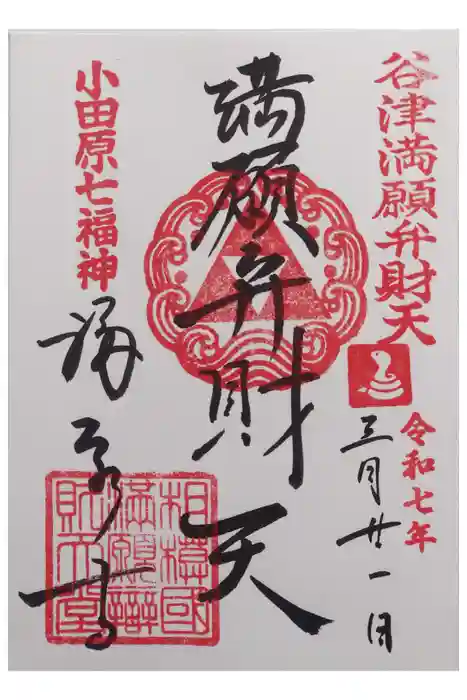 谷津満願弁財天
令和七年
三月廿一日
満願弁財天
小田原七福神
福泉寺
相模國
満願辯
財天堂